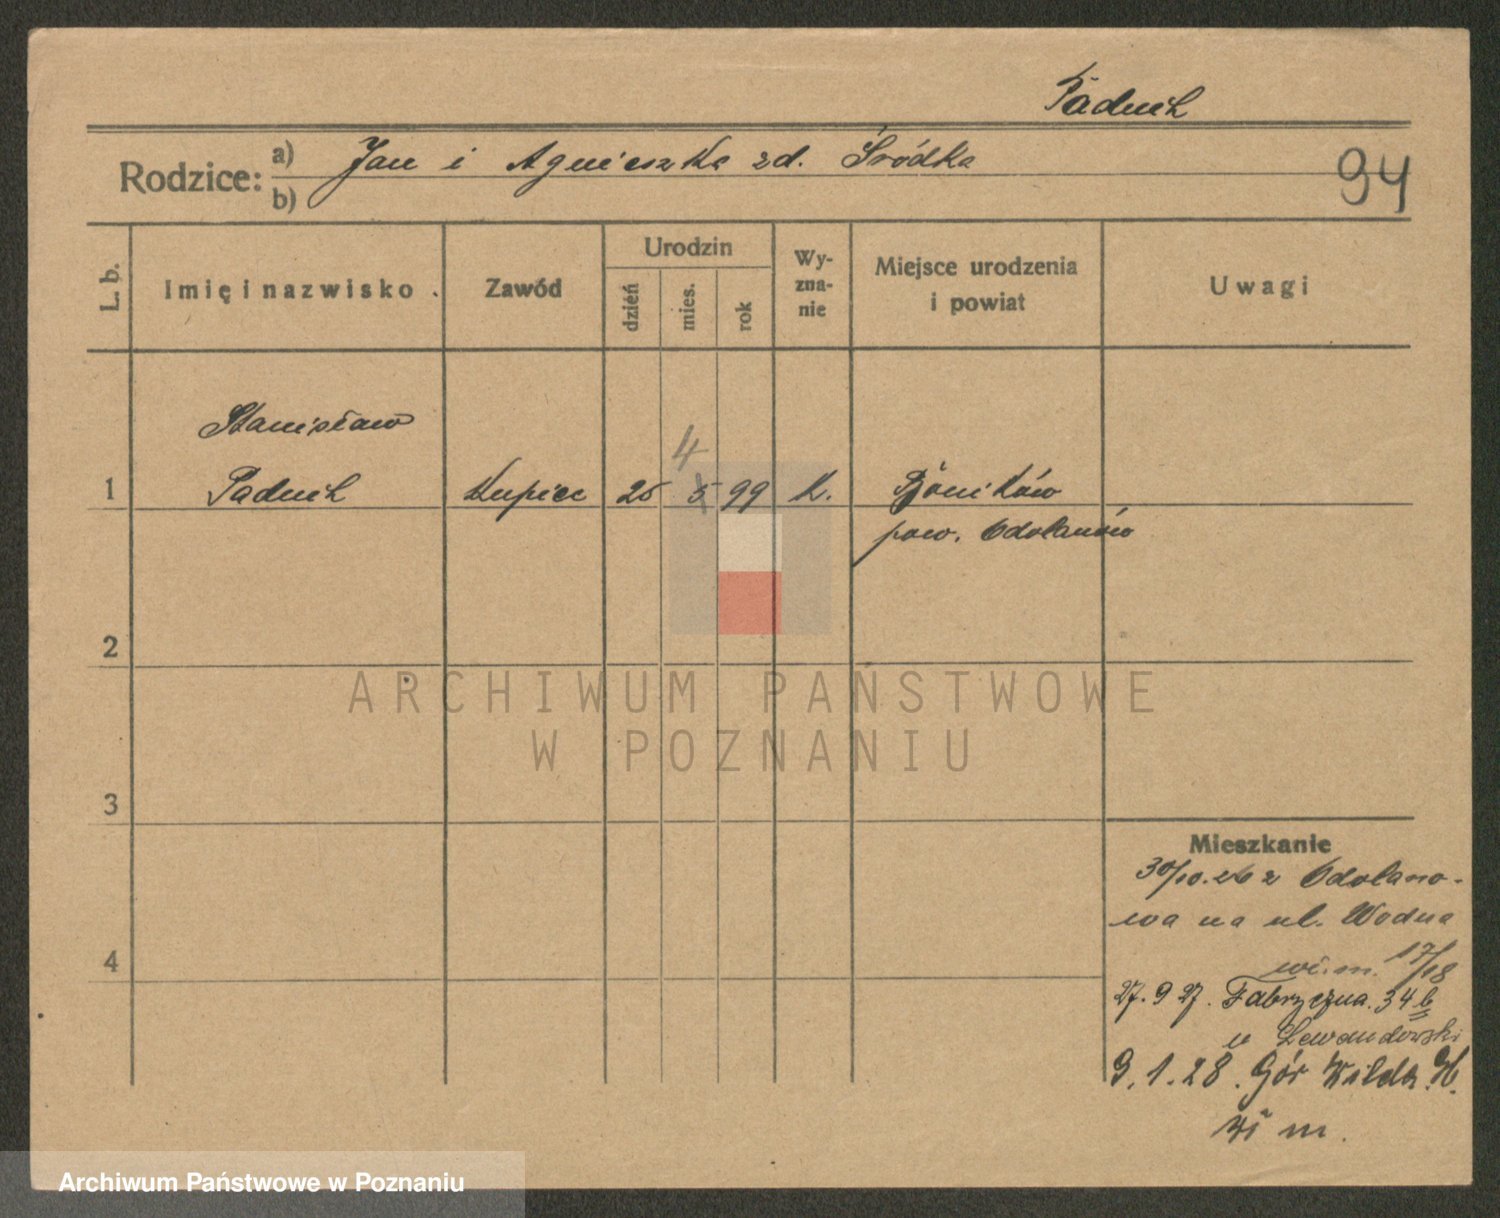 Paduch
Rodzice: a) Jan i Agnieszka zd. Śródka
b)
94
L. b.
Imię i nazwisko
Zawód
Urodzin
dzień
mies.
rok
Wy-
zna-
nie
Miejsce urodzenia
i powiat
Uwagi
Stanisław
4
1 Paduch kupiec 25 5 99 k. Boników
pow. Odolanów
2
ARCHIWUM PAŃSTWOWE
W POZNANIU
3
Mieszkanie
30/10.26 z Odolano-
wa na ul. Wodna
17/18
wi. m.
4
27.9 27. Fabryczna. 34 b
u Lewandowski
9.1.28. Gór Wilda
wi m.
Archiwum Państwowe w Poznaniu